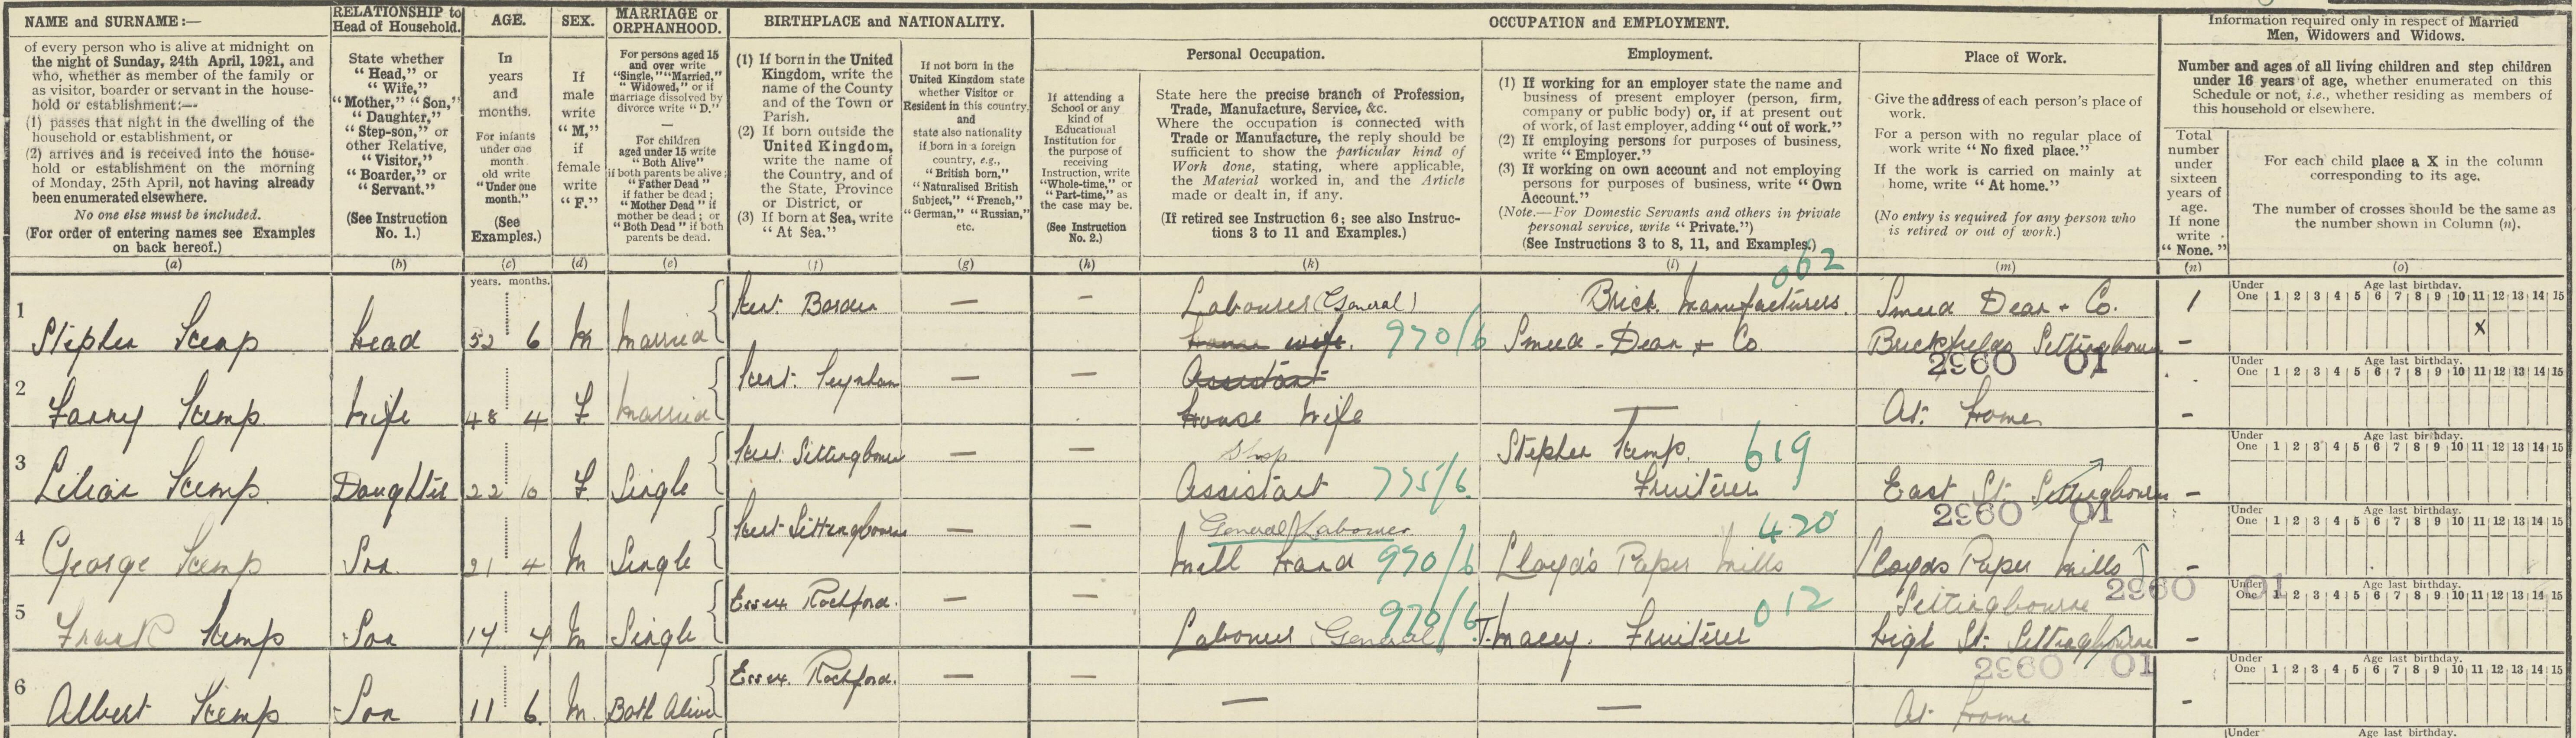 NAME and SURNAME :—
of every person who is alive at midnight on
the night of Sunday, 24th April, 1921, and
who, whether as member of the family or
as visitor, boarder or servant in the house-
hold or establishment:—
(1) passes that night in the dwelling of the
household or establishment, or
(2) arrives and is received into the house-
hold or establishment on the morning
of Monday, 25th April, not having already
been enumerated elsewhere.
No one else must be included.
(For order of entering names see Examples
on back hereof.)
(a)
RELATIONSHIP to
Head of Household.
State whether
"Head," or
"Wife,"
"Mother," "Son,"
"Daughter,"
"Step-son," or
other Relative,
"Visitor,"
"Boarder," or
"Servant."
(See Instruction
No. 1.)
(b)
AGE.
In
years
and
months.
For infants
under one
month
old write
"Under one
month."
(See
Examples.)
(c)
SEX.
If
male
write
"M,"
if
female
write
"F."
(d)
MARRIAGE or
ORPHANHOOD.
For persons aged 15
and over write
"Single," "Married,"
"Widowed," or if
marriage dissolved by
divorce write "D."
—
For children
aged under 15 write
"Both Alive"
if both parents be alive;
"Father Dead"
if father be dead;
"Mother Dead" if
mother be dead; or
"Both Dead" if both
parents be dead.
(e)
BIRTHPLACE and NATIONALITY.
(1) If born in the United
Kingdom, write the
name of the County
and of the Town or
Parish.
(2) If born outside the
United Kingdom,
write the name of
the Country, and of
the State, Province
or District, or
(3) If born at Sea, write
"At Sea."
(f)
If not born in the
United Kingdom state
whether Visitor or
Resident in this country.
and
state also nationality
if born in a foreign
country, e.g.,
"British born,"
"Naturalised British
Subject," "French,"
"German," "Russian,"
etc.
(g)
OCCUPATION and EMPLOYMENT.
If attending a
School or any
kind of
Educational
Institution for
the purpose of
receiving
Instruction, write
"Whole-time," or
"Part-time," as
the case may be.
(See Instruction
No. 2.)
(h)
Personal Occupation.
State here the precise branch of Profession,
Trade, Manufacture, Service, &c.
Where the occupation is connected with
Trade or Manufacture, the reply should be
sufficient to show the particular kind of
Work done, stating, where applicable,
the Material worked in, and the Article
made or dealt in, if any.
(If retired see Instruction 6; see also Instruc-
tions 3 to 11 and Examples.)
(k)
Employment.
(1) If working for an employer state the name and
business of present employer (person, firm,
company or public body) or, if at present out
of work, of last employer, adding "out of work."
(2) If employing persons for purposes of business,
write "Employer."
(3) If working on own account and not employing
persons for purposes of business, write "Own
Account."
(Note.—For Domestic Servants and others in private
personal service, write "Private.")
(See Instructions 3 to 8, 11, and Examples.)
(l)
Place of Work.
Give the address of each person's place of
work.
For a person with no regular place of
work write "No fixed place."
If the work is carried on mainly at
home, write "At home."
(No entry is required for any person who
is retired or out of work.)
(m)
Information required only in respect of Married
Men, Widowers and Widows.
Number and ages of all living children and step children
under 16 years of age, whether enumerated on this
Schedule or not, i.e., whether residing as members of
this household or elsewhere.
Total
number
under
sixteen
years of
age.
If none
write
"None."
(n)
For each child place a X in the column
corresponding to its age.
The number of crosses should be the same as
the number shown in Column (n).
(o)
years. months.
Under Age last birthday.
One 1 2 3 4 5 6 7 8 9 10 11 12 13 14 15
1
Kent Borden — — Labourer (General) Brick Manufacturers 062 Smeed Dean & Co. 1
Stephen Kemp Head 52 6 M Married house wife. 970/6 Smeed-Dean & Co. Brickfields Sittingbourne — X
2960 01
Under Age last birthday.
One 1 2 3 4 5 6 7 8 9 10 11 12 13 14 15
2
Kent: Teynham — — Assistant
Fanny Kemp Wife 48 4 F Married House Wife — At Home —
Under Age last birthday.
One 1 2 3 4 5 6 7 8 9 10 11 12 13 14 15
3
Kent Sittingbourne — — Shop Stephen Kemp. 619
Lilian Kemp Daughter 22 10 F Single Assistant 775/6 Fruiterer East St. Sittingbourne —
2960 01
Under Age last birthday.
One 1 2 3 4 5 6 7 8 9 10 11 12 13 14 15
4
Kent Sittingbourne — — General Labourer 420
George Kemp Son 21 4 M Single Mill Hand 970/6 Lloyd's Paper Mills Lloyds Paper Mills —
Sittingbourne 2960 01
Under Age last birthday.
One 1 2 3 4 5 6 7 8 9 10 11 12 13 14 15
5
Essex Rochford. — — 970/6 012
Frank Kemp Son 17 4 M Single Labourer General T. Macey. Fruiterer High St: Sittingbourne —
2960 01
Under Age last birthday.
One 1 2 3 4 5 6 7 8 9 10 11 12 13 14 15
6
Essex. Rochford. — —
Albert Kemp Son 11 6 M. Both Alive — — At Home —
Under Age last birthday.